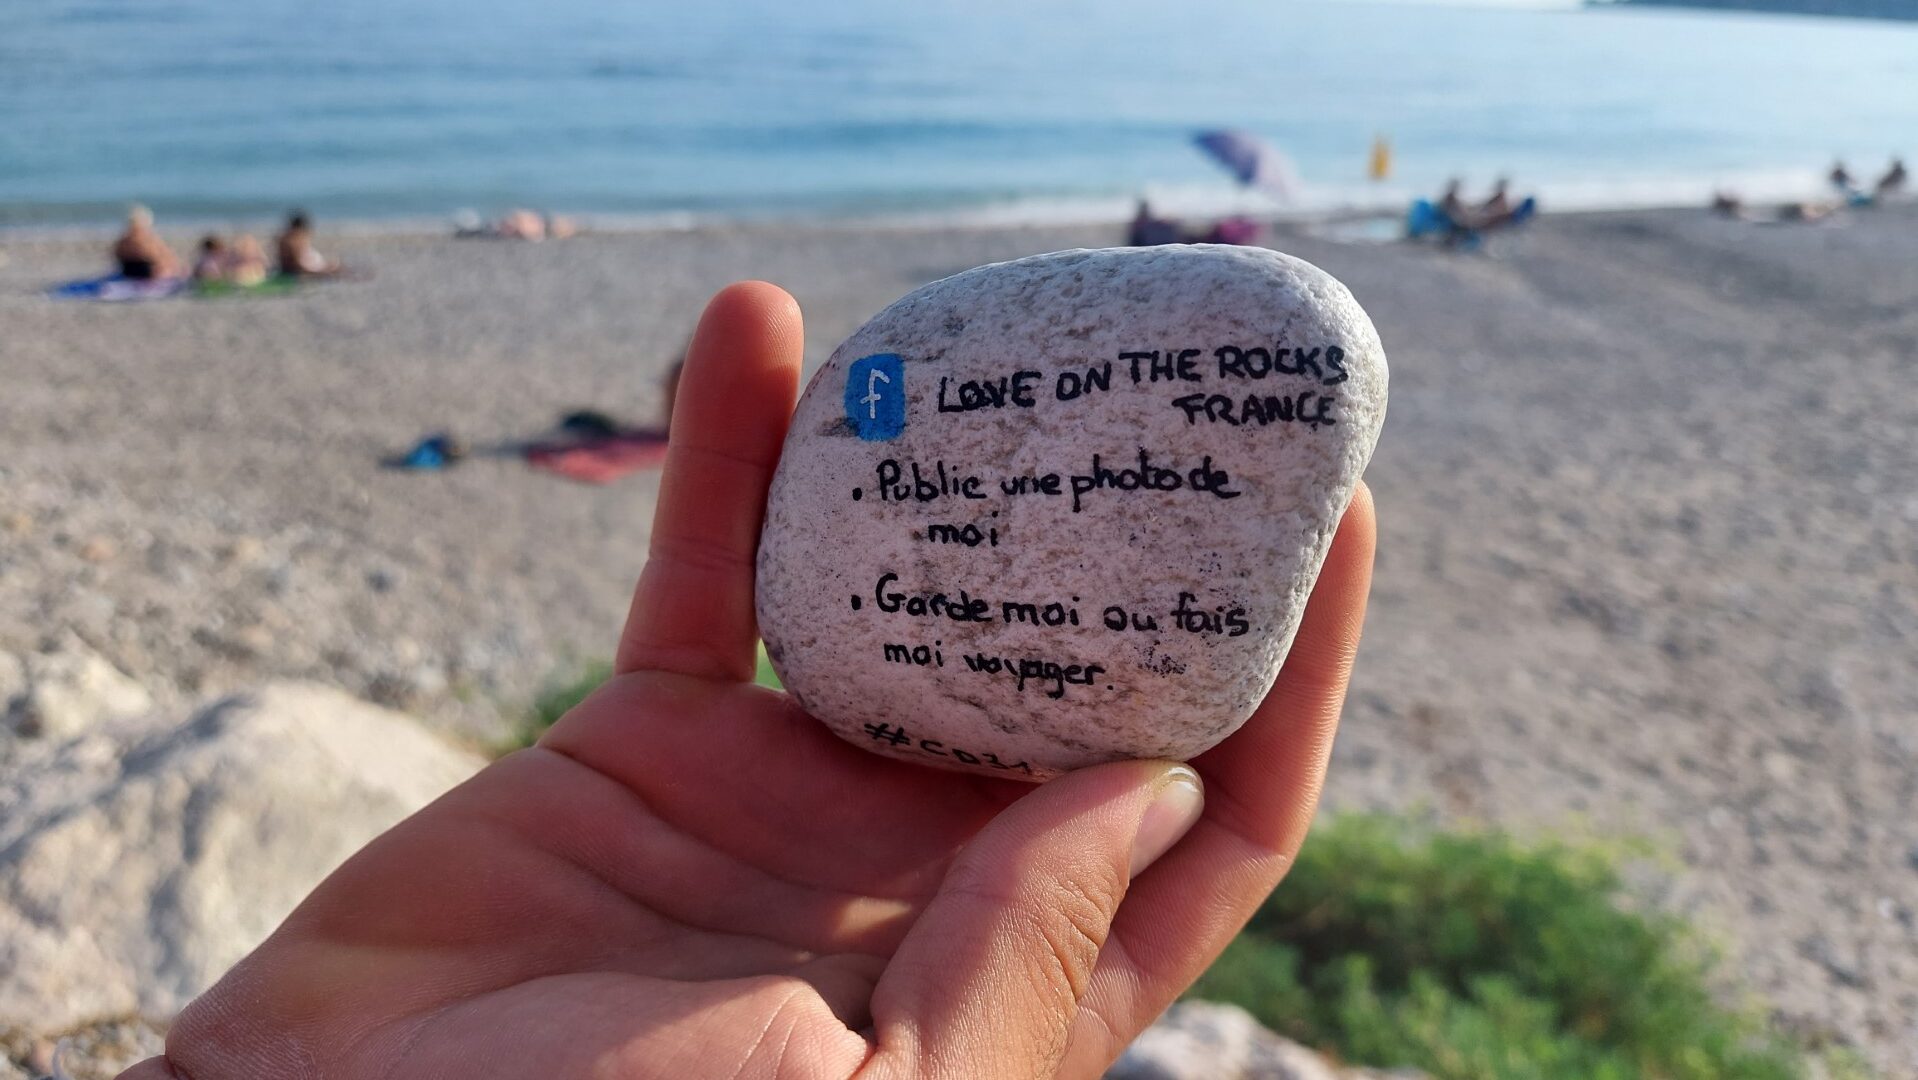 f LOVE ON THE ROCKS
FRANCE
• Public une photo de
moi
• Garde moi ou fais
moi voyager.
#CD21